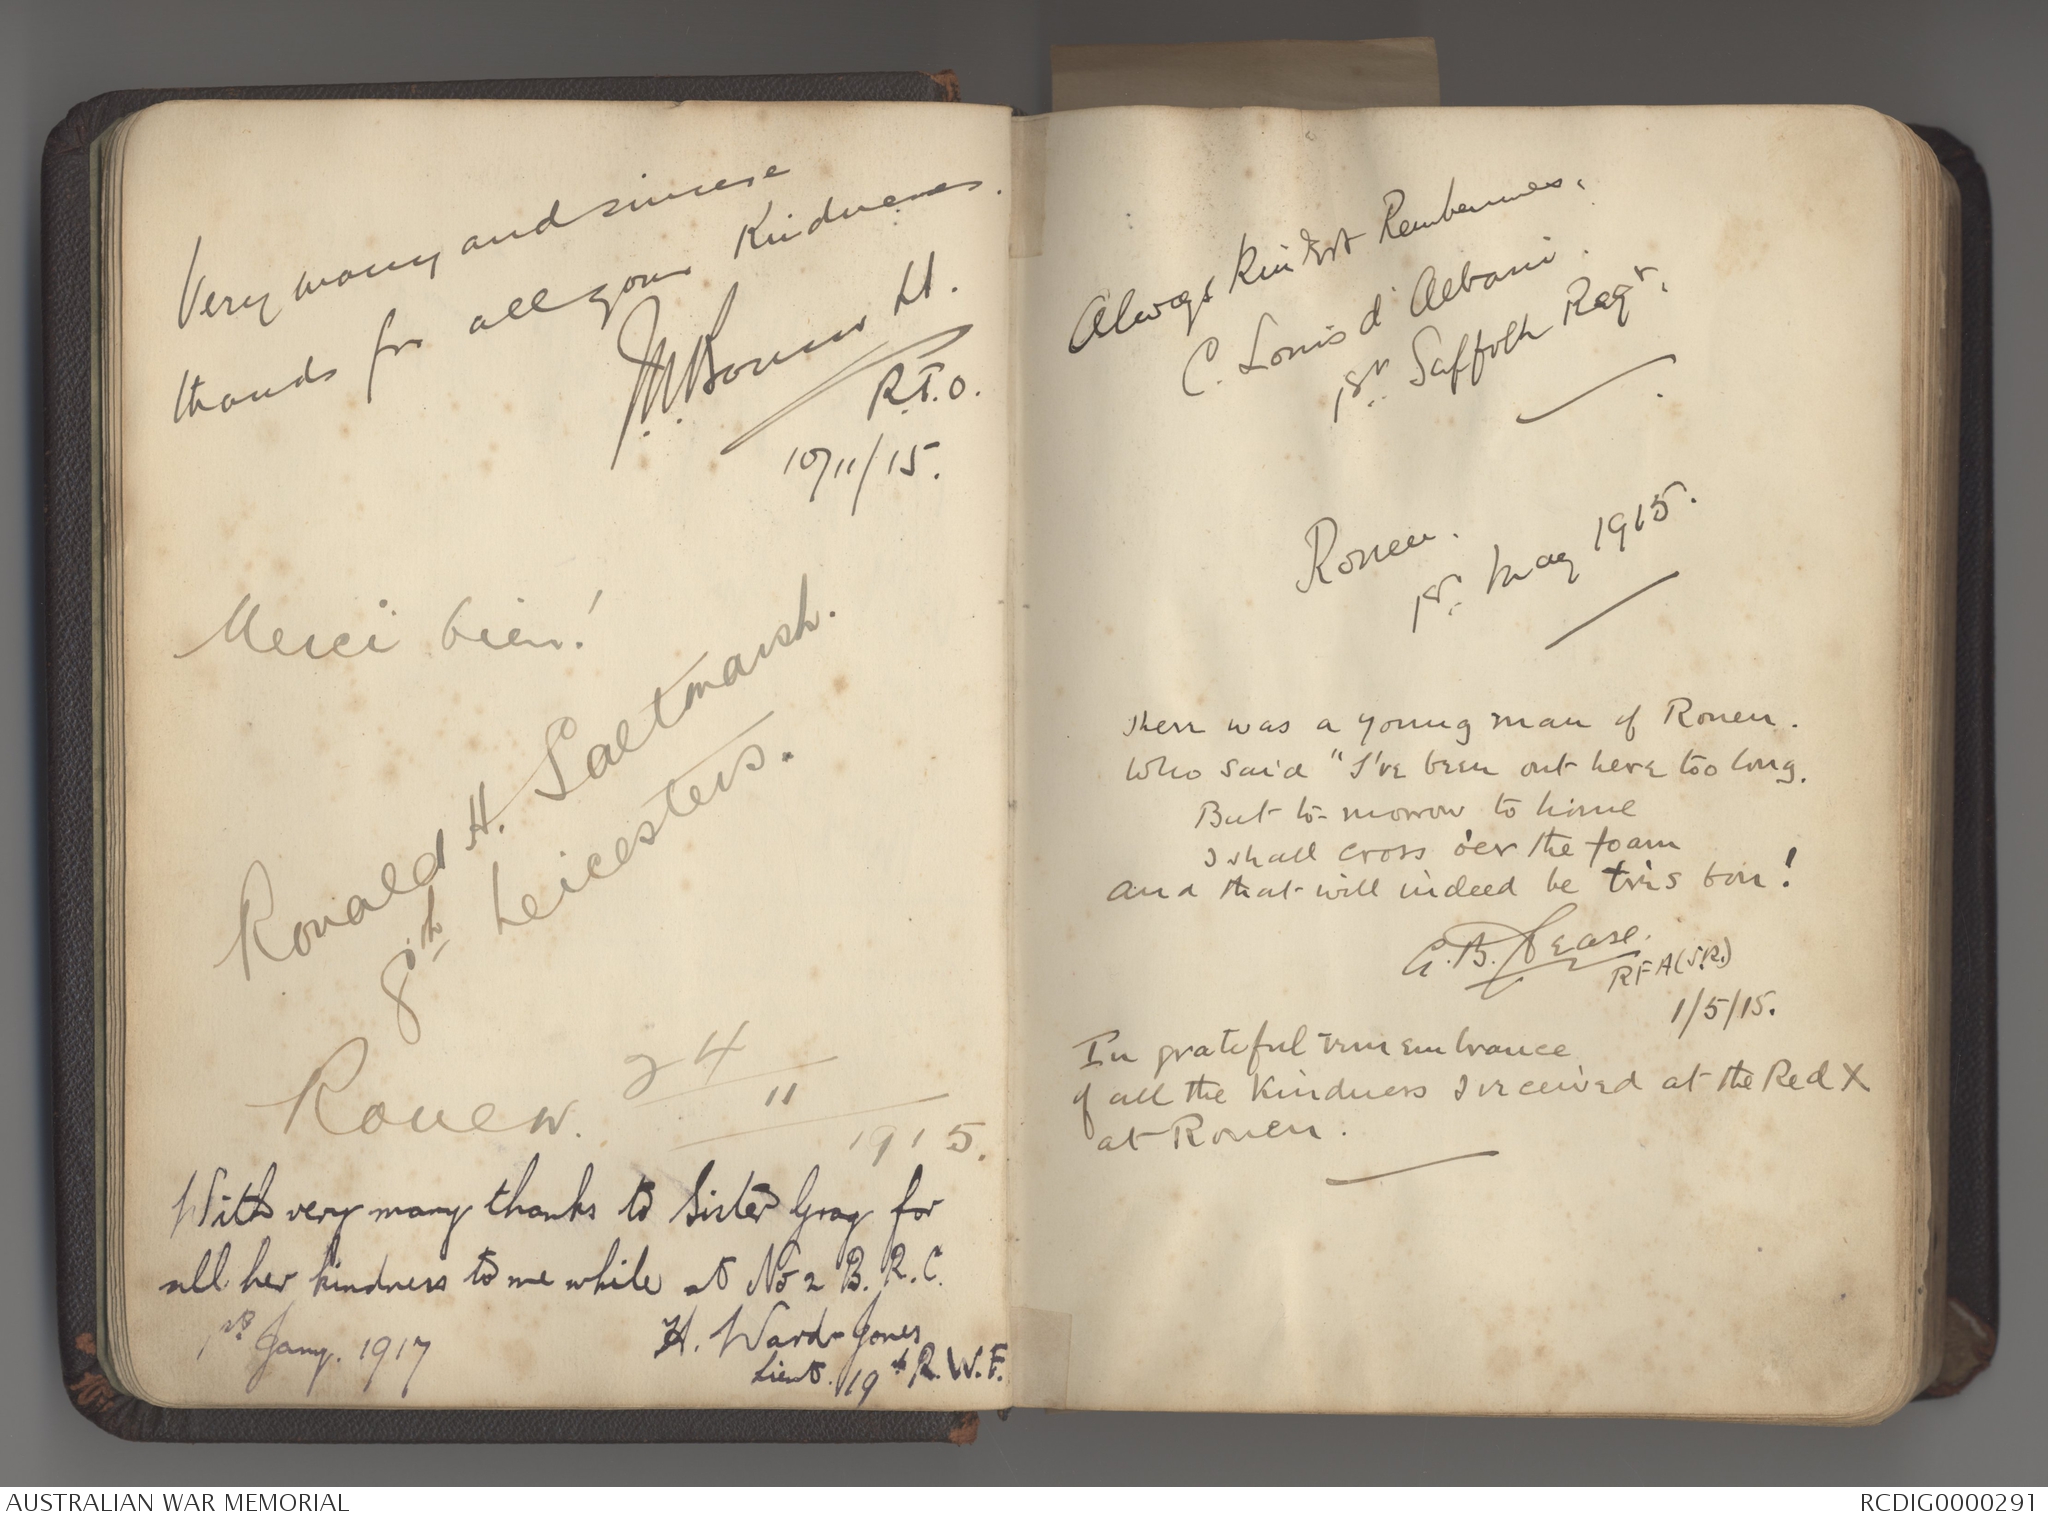 Very many and sincere
thanks for all your kindnesses.
Lt.
R.T.O.
10/11/15.
Merci bien!
Ronald H. Saltmarsh.
8th Leicesters.
Rouen. 24
11
1915.
With very many thanks to Sister Gray for
all her kindness to me while at No 2 B. R. C.
1st Jany. 1917 H. Ward-Jones
Lieut. 19th R.W.F.
Always kindest Rembennes.
C. Louis d'Albani.
1st Suffolk Regt.
Rouen.
1st May 1915.
There was a young man of Rouen.
Who said "I've been out here too long.
But to-morrow to home
I shall cross o'er the foam
And that will indeed be très bon!
G.B. Pease.
RFA (S.R.)
1/5/15.
In grateful remembrance
of all the kindness I received at the Red X
at Rouen.
AUSTRALIAN WAR MEMORIAL
RCDIG0000291